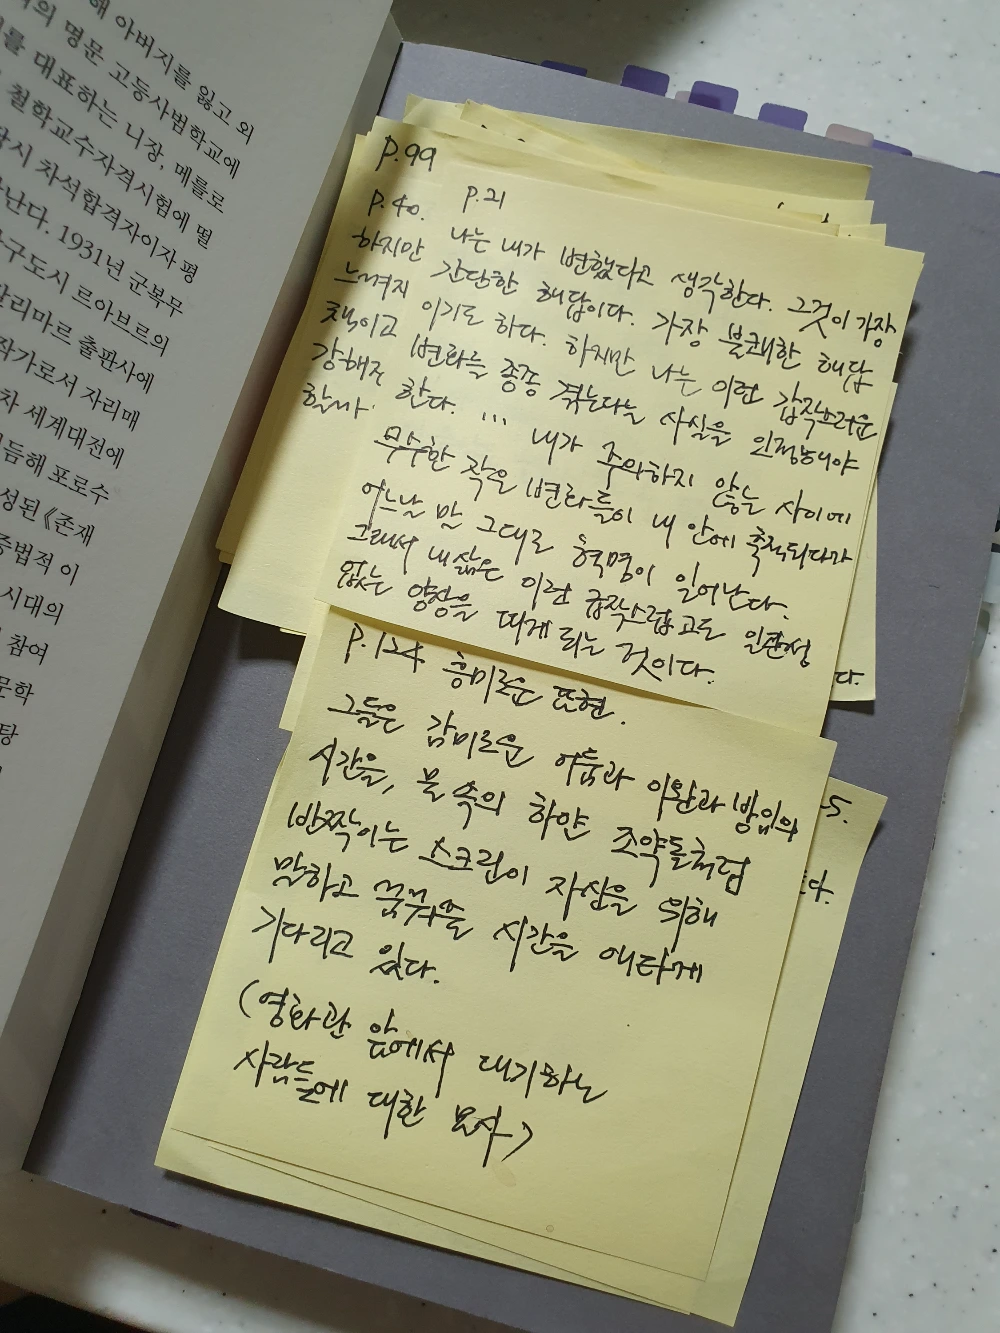 해 아버지를 잃고 외
의 명문 고등사범학교에
를 대표하는 니장, 메를로
철학교수자격시험에 떨
시 차석합격자이자 평
난다. 1931년 군복무
구도시 르아브르의
갈리마르 출판사에
작가로서 자리매
차 세계대전에
듬해 포로수
성된 《존재
증법적 이
시대의
참여
문학
탕
P.99
P.40.
하지만
느껴지
책이고
강해져
할까.
P.21
나는 내가 변했다고 생각한다. 그것이 가장
간단한 해답이다. 가장 불쾌한 해답
이기도 하다. 하지만 나는 이런 갑작스러운
변화를 종종 겪는다는 사실을 인정해야
한다. ... 내가 주의하지 않는 사이에
무수한 작은 변화들이 내 안에 축적되다가
어느날 말 그대로 혁명이 일어난다.
그래서 내 삶은 이런 급작스럽고도 일관성
없는 양상을 띠게 되는 것이다.
다.
P.124 흥미로운 표현.
그들은 감미로운 어둠과 이완과 방임의
시간을, 물 속의 하얀 조약돌처럼
반짝이는 스크린이 자신을 위해
말하고 꿈꿔줄 시간을 애타게
기다리고 있다.
(영화관 앞에서 대기하는
사람들에 대한 묘사)
5.